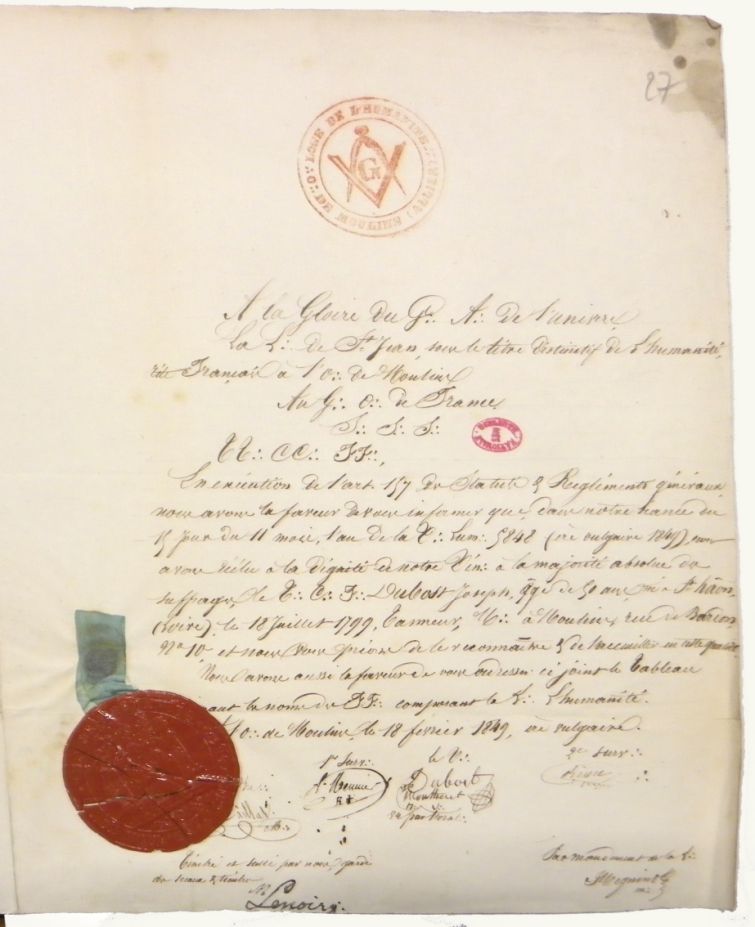 27
LOGE DE L'HUMANITÉ
MOULINS (ALLIER)
G
A la Gloire du G∴ A∴ de l'univers
La L∴ de St Jean, sous le titre distinctif de L'humanité,
rite Français à l'O∴ de Moulins
Au G∴ O∴ de France
S∴ S∴ S∴
TT∴ CC∴ FF∴,
En exécution de l'art. 157 des Statuts & Règlements généraux,
nous avons la faveur de vous informer que, dans notre tenue du
15 jour du 11 mois, l'an de la V∴ Lum∴ 5848 (ère vulgaire 1849), nous
avons réélu à la dignité de notre Vén∴ à la majorité absolue des
suffrages, le T∴ C∴ F∴ Dubost Joseph, âgé de 50 ans, né à St hâon,
(Loire), le 18 Juillet 1799, tanneur, à Moulins, rue de
No 10, et nous vous prions de le reconnaître & de l'accueillir en cette qualité.
Nous avons aussi la faveur de vous adresser ci joint le tableau
des FF∴ composant la L∴ L'humanité.
O∴ de Moulins, le 18 février 1849, ère vulgaire.
1er Surv∴ le V∴ 2e Surv∴
Dubost
Timbré et scellé par nous, garde
des sceaux & timbre
Lenoir
Par mandement de la L∴